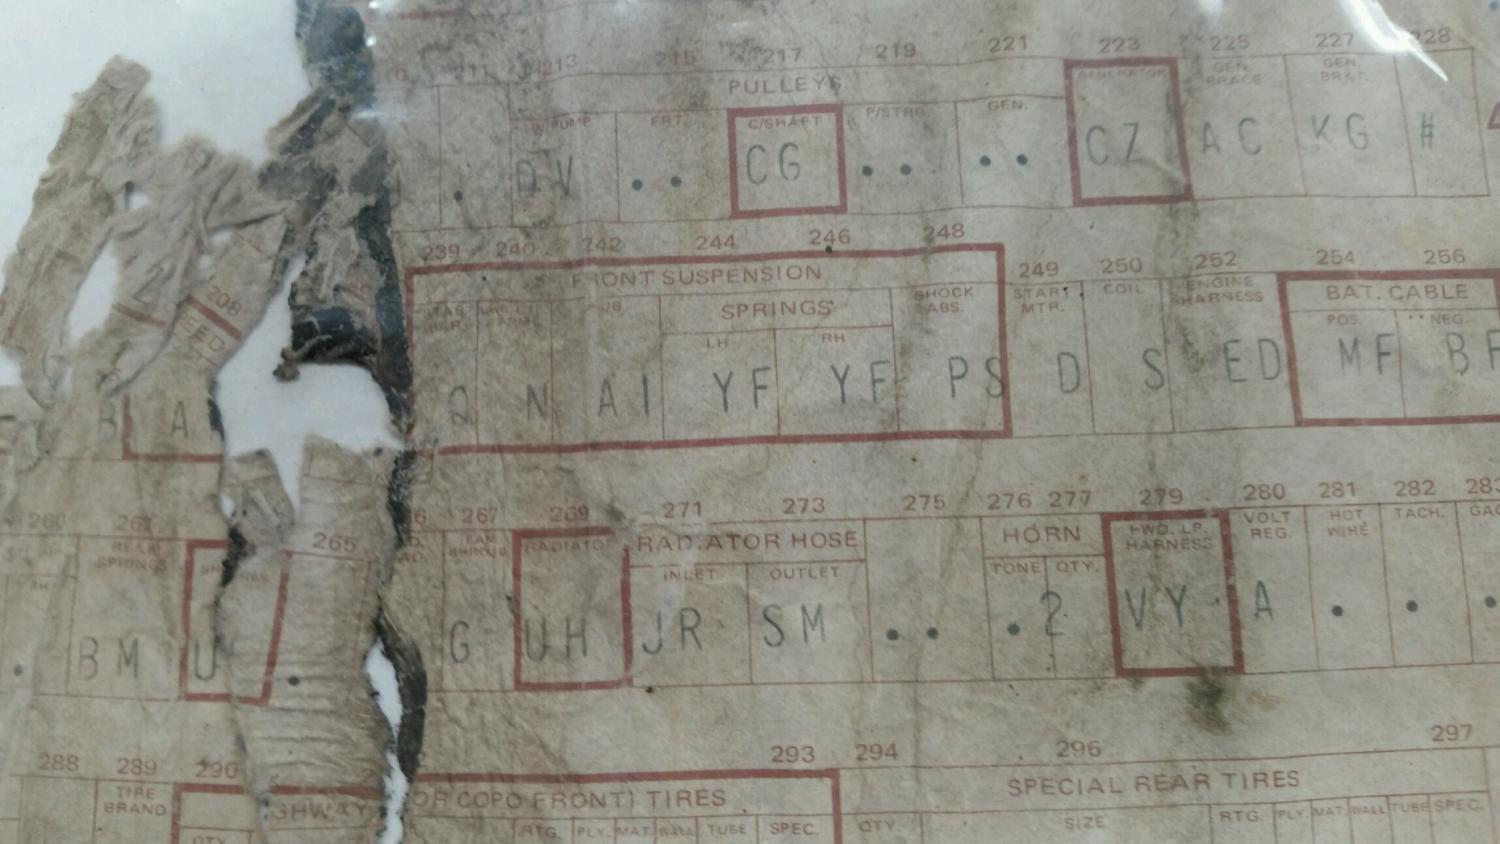 211 213 215 217 219 221 223 225 227 228
PULLEYS GENERATOR GEN. BRACE GEN. BRKT.
W/PUMP FRT. C/SHAFT P/STRG. GEN.
. DV .. CG .. .. CZ AC KG #
208
239 240 242 244 246 248 249 250 252 254 256
FRONT SUSPENSION START. MTR. COIL ENGINE HARNESS BAT. CABLE
SPRINGS SHOCK ABS. POS. NEG.
LH RH
B A 2 N AI YF YF PS D S ED MF BF
260 261 265 267 269 271 273 275 276 277 279 280 281 282 283
REAR SPRINGS FAN SHROUD RADIATOR RADIATOR HOSE HORN FWD. LP. HARNESS VOLT REG. HOT WIRE TACH.
RH INLET OUTLET TONE QTY.
. BM U . G UH JR SM .. . 2 VY A . . .
288 289 290 293 294 296 297
TIRE BRAND GHWAY OR COPO FRONT) TIRES SPECIAL REAR TIRES
QTY RTG. PLY. MAT. WALL TUBE SPEC. QTY. SIZE RTG. PLY. MAT. WALL TUBE SPEC.